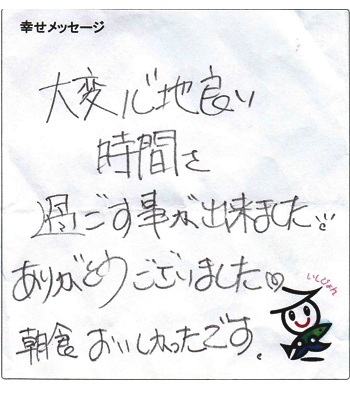 幸せメッセージ
大変心地良い
時間を
過ごす事が出来ました
ありがとうございました
朝食 おいしかったです。